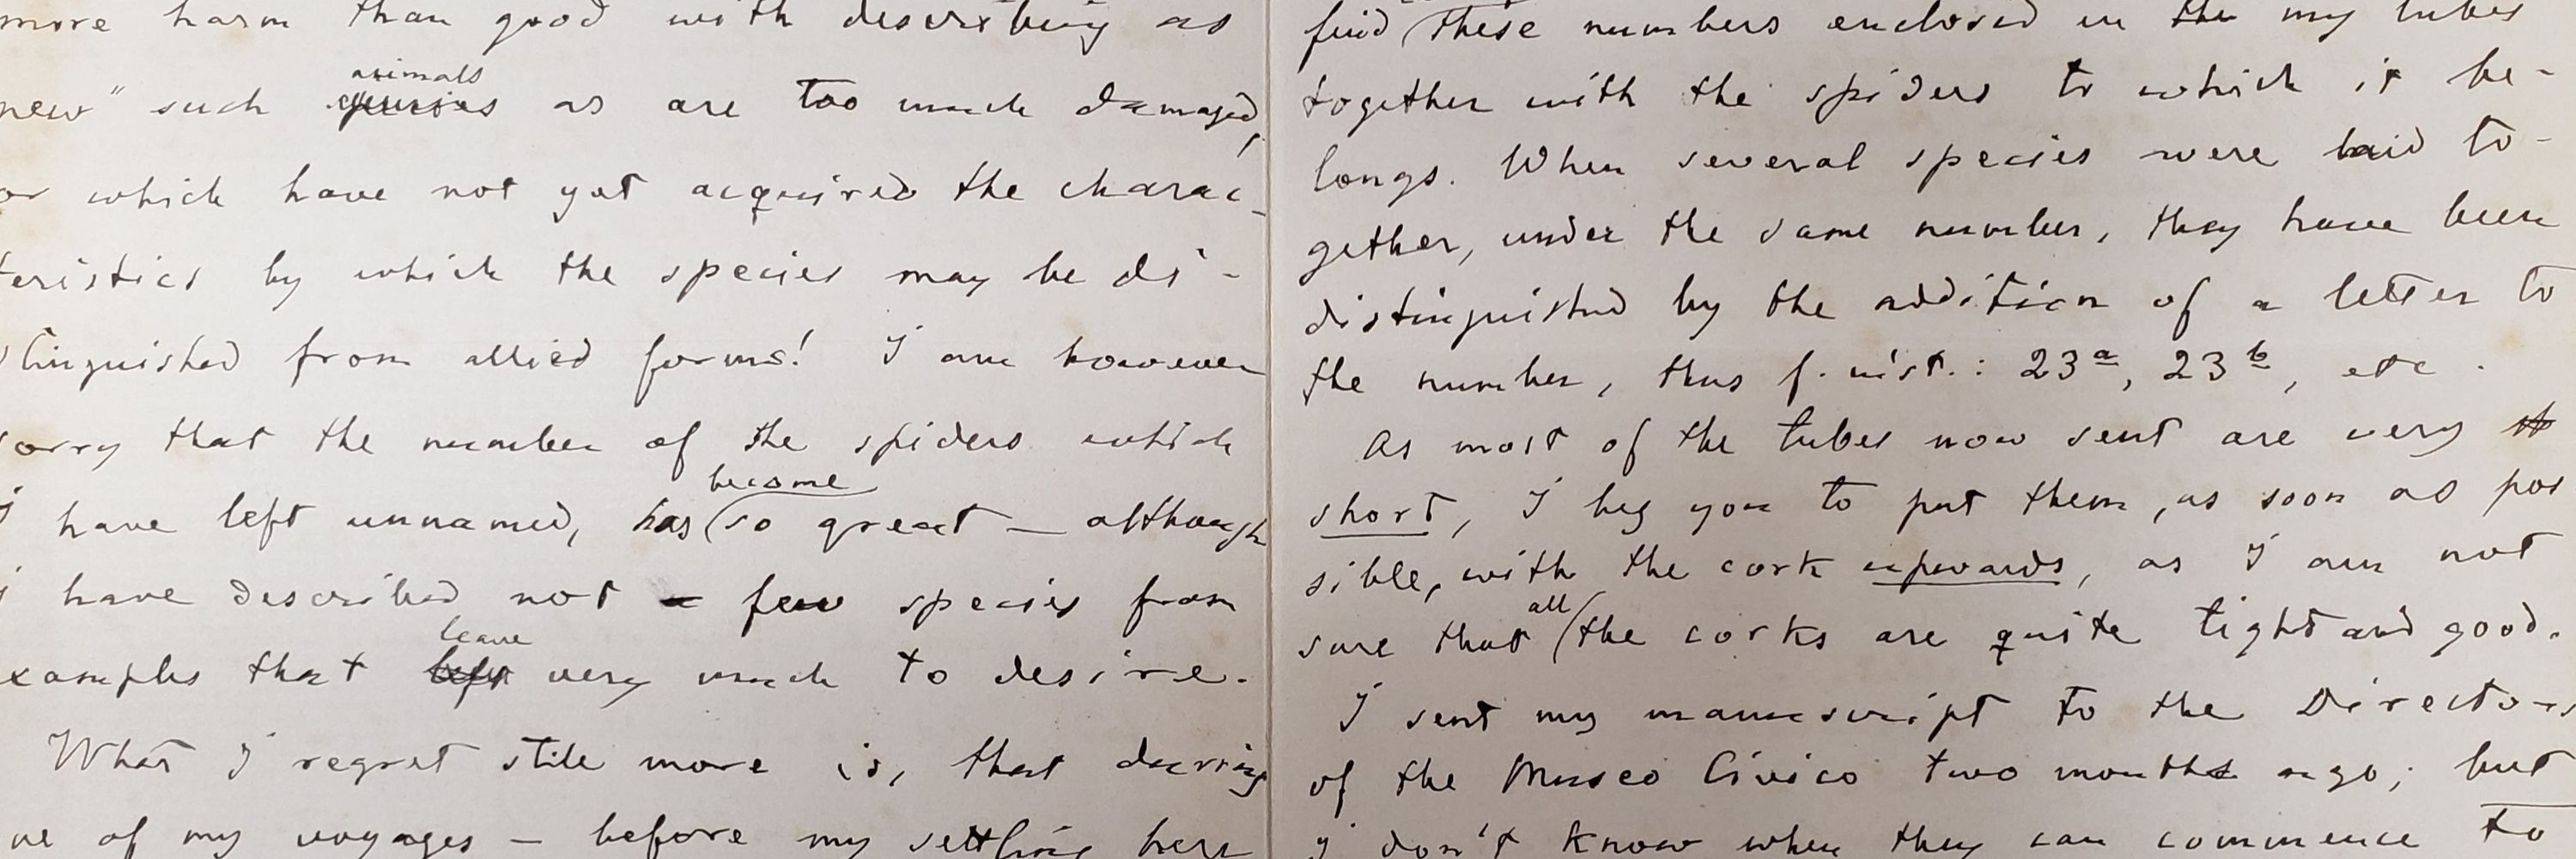 more harm than good with describing as
animals
new" such species as are too much damaged,
or which have not yet acquired the charac-
teristics by which the species may be di-
stinguished from allied forms! I am however
sorry that the number of the spiders which
become
I have left unnamed, has so great — although
I have described not a few species from
leave
examples that left very much to desire.
What I regret still more is, that during
one of my voyages — before my settling here
find these numbers enclosed in the my tubes
together with the spiders to which it be-
longs. When several species were laid to-
gether, under the same number, they have been
distinguished by the addition of a letter to
the number, thus f. inst.: 23a, 23b, etc.
As most of the tubes now sent are very
short, I beg you to put them, as soon as pos
sible, with the cork upwards, as I am not
all
sure that the corks are quite tight and good.
I sent my manuscript to the Directors
of the Museo Civico two months ago; but
I don't know when they can commence to